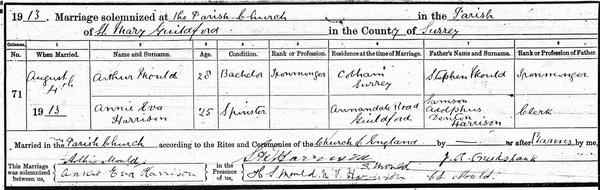 1913. Marriage solemnized at the Parish Church in the Parish
of St. Mary Guildford in the County of Surrey
Columns. 1 2 3 4 5 6 7 8
No. When Married. Name and Surname. Age. Condition. Rank or Profession. Residence at the time of Marriage. Father's Name and Surname. Rank or Profession of Father.
71 August 4th 1913
Arthur Mould 28 Bachelor Ironmonger Cobham Surrey Stephen Mould Ironmonger
Annie Eva Harrison 25 Spinster Annandale Road Guildford Samson Adolphus Denton Harrison Clerk
Married in the Parish Church according to the Rites and Ceremonies of the Church of England by — or after Banns by me,
This Marriage was solemnized between us, Mould Annie Eva Harrison in the Presence of us, Harrison S. Mould H. S. Mould J. A. Cruikshank Mould.